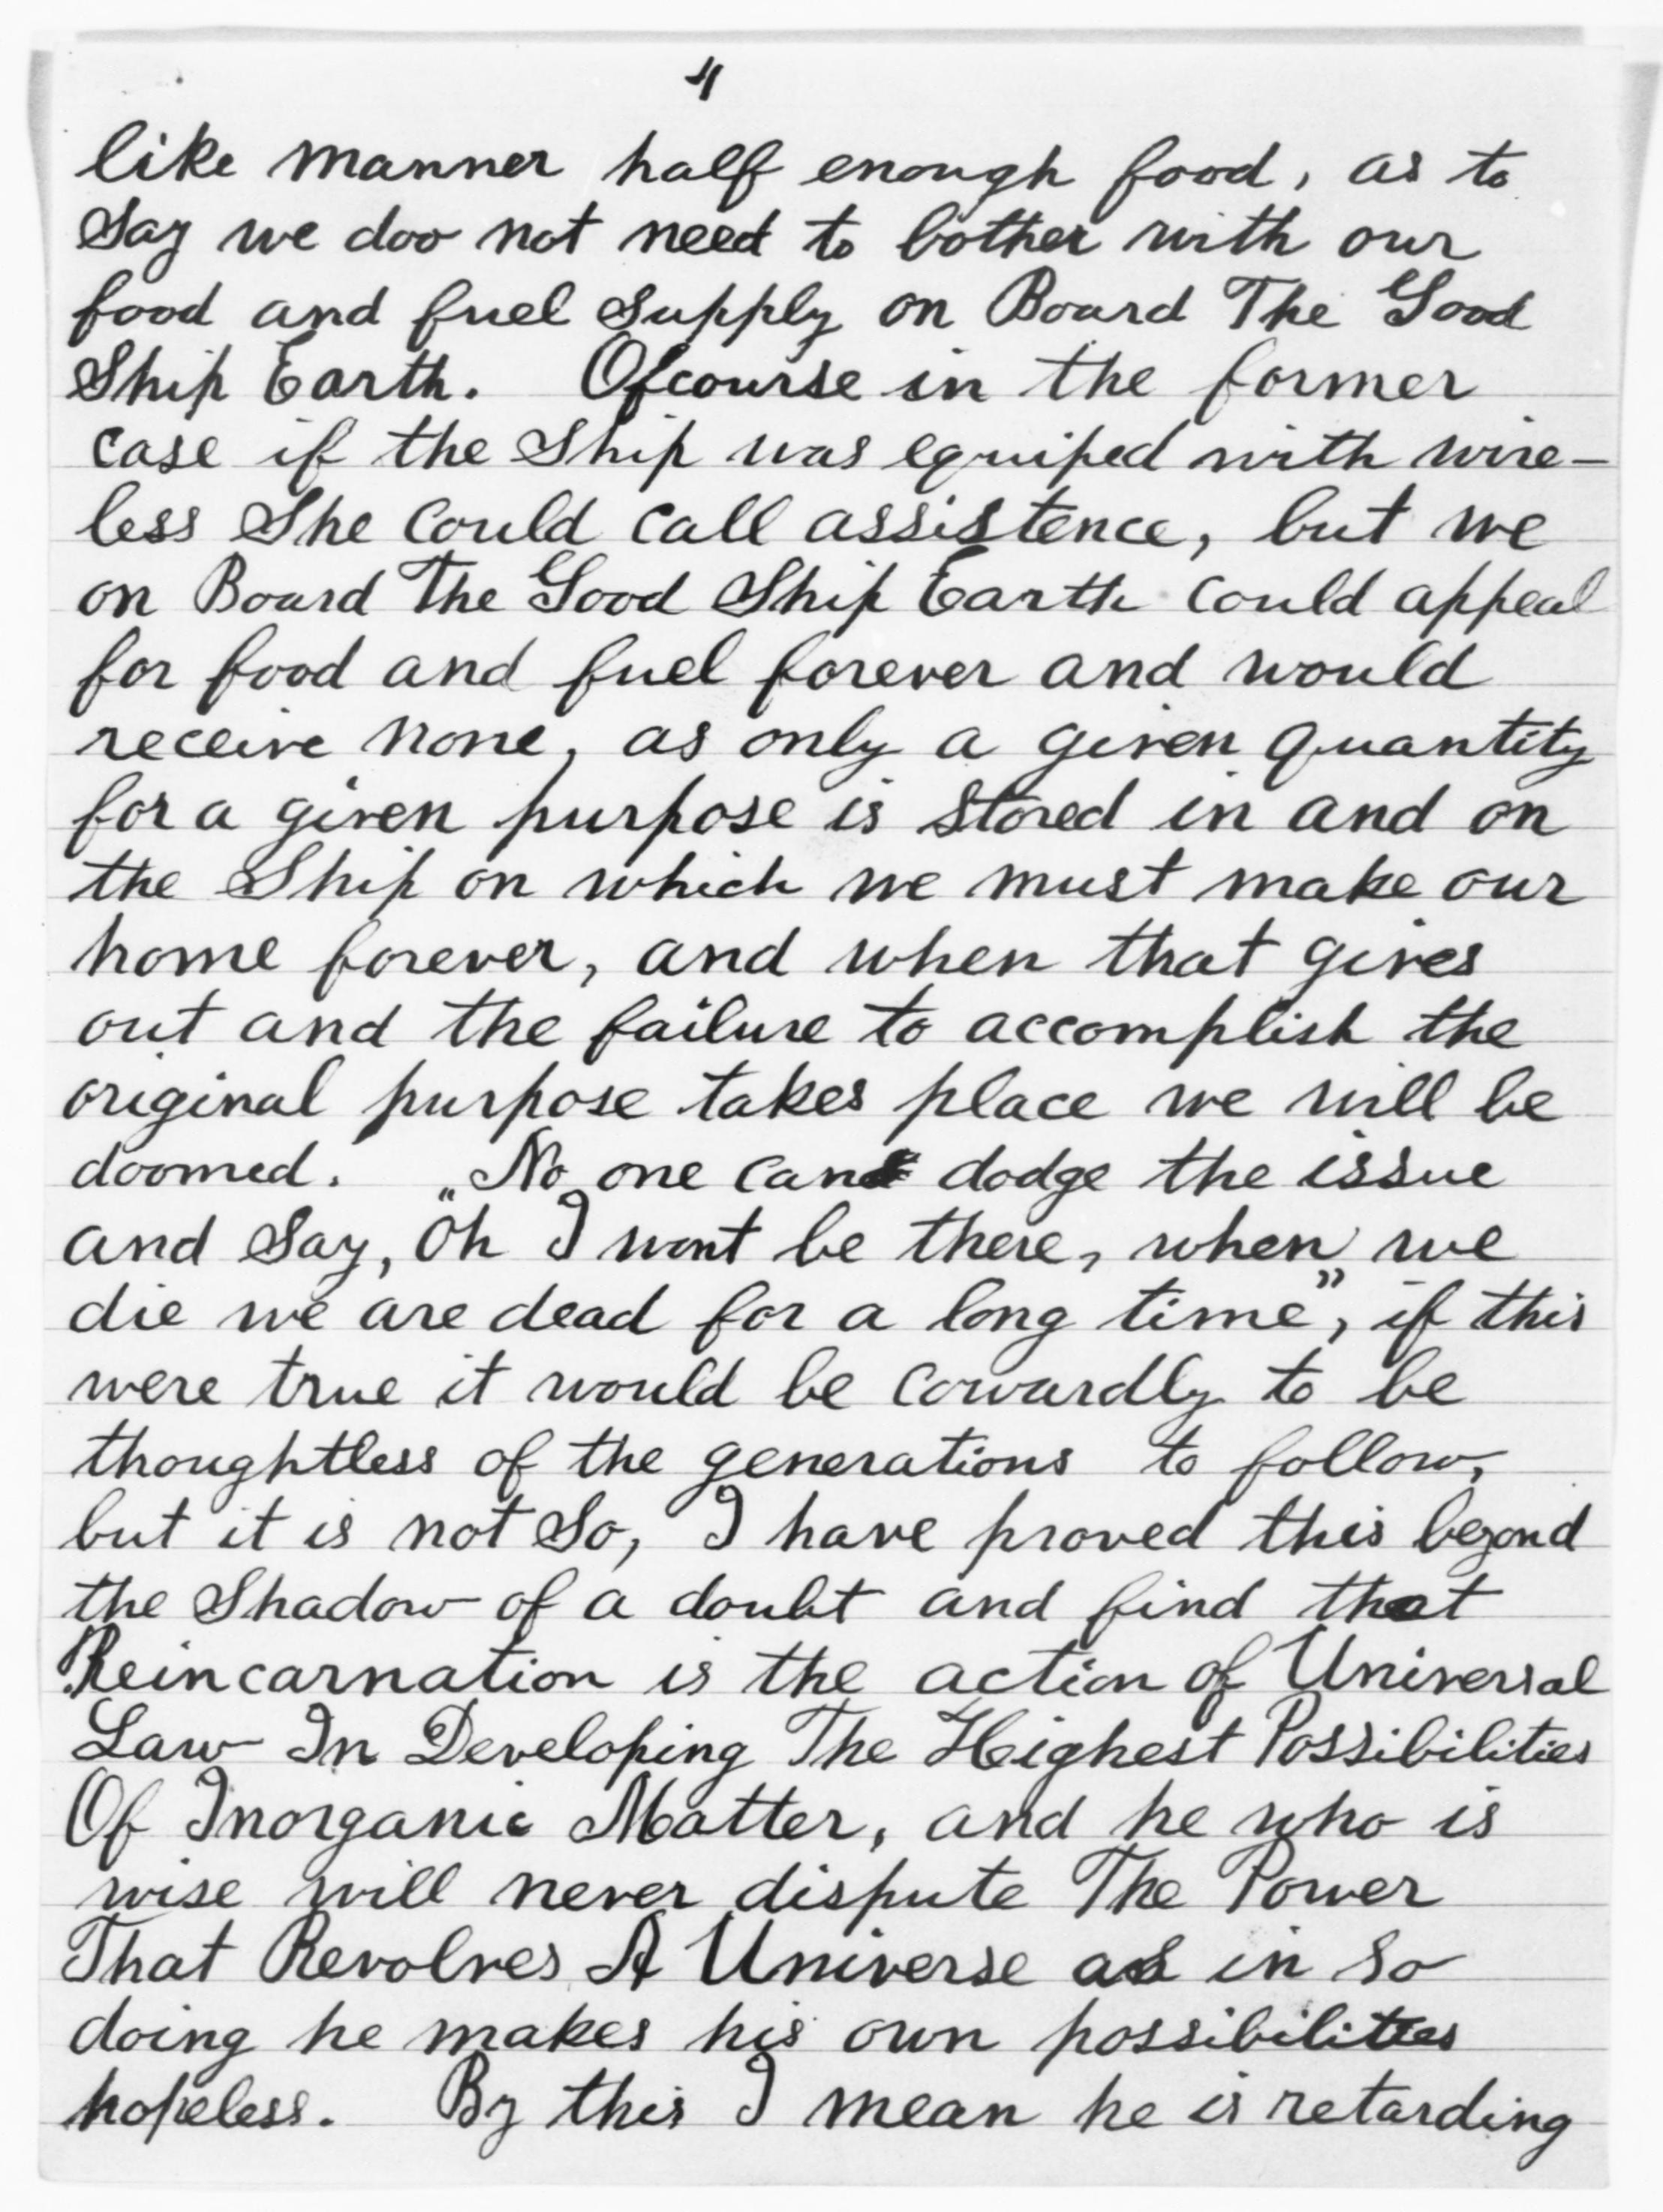 4
like manner half enough food, as to
Say we doo not need to bother with our
food and fuel Supply on Board The Good
Ship Earth. Ofcourse in the former
case if the Ship was equiped with wire-
less She Could Call assistence, but we
on Board The Good Ship Earth Could appeal
for food and fuel forever and would
receive none, as only a given quantity
for a given purpose is Stored in and on
the Ship on which we must make our
home forever, and when that gives
out and the failure to accomplish the
original purpose takes place we will be
doomed. „No one can dodge the issue
and Say, Oh I wont be there, when we
die we are dead for a long time”, if this
were true it would be Cowardly to be
thoughtless of the generations to follow,
but it is not So, I have proved this beyond
the Shadow of a doubt and find that
Reincarnation is the action of Universal
Law In Developing The Highest Possibilities
Of Inorganic Matter, and he who is
wise will never dispute The Power
That Revolves A Universe as in So
doing he makes his own possibilities
hopeless. By this I mean he is retarding